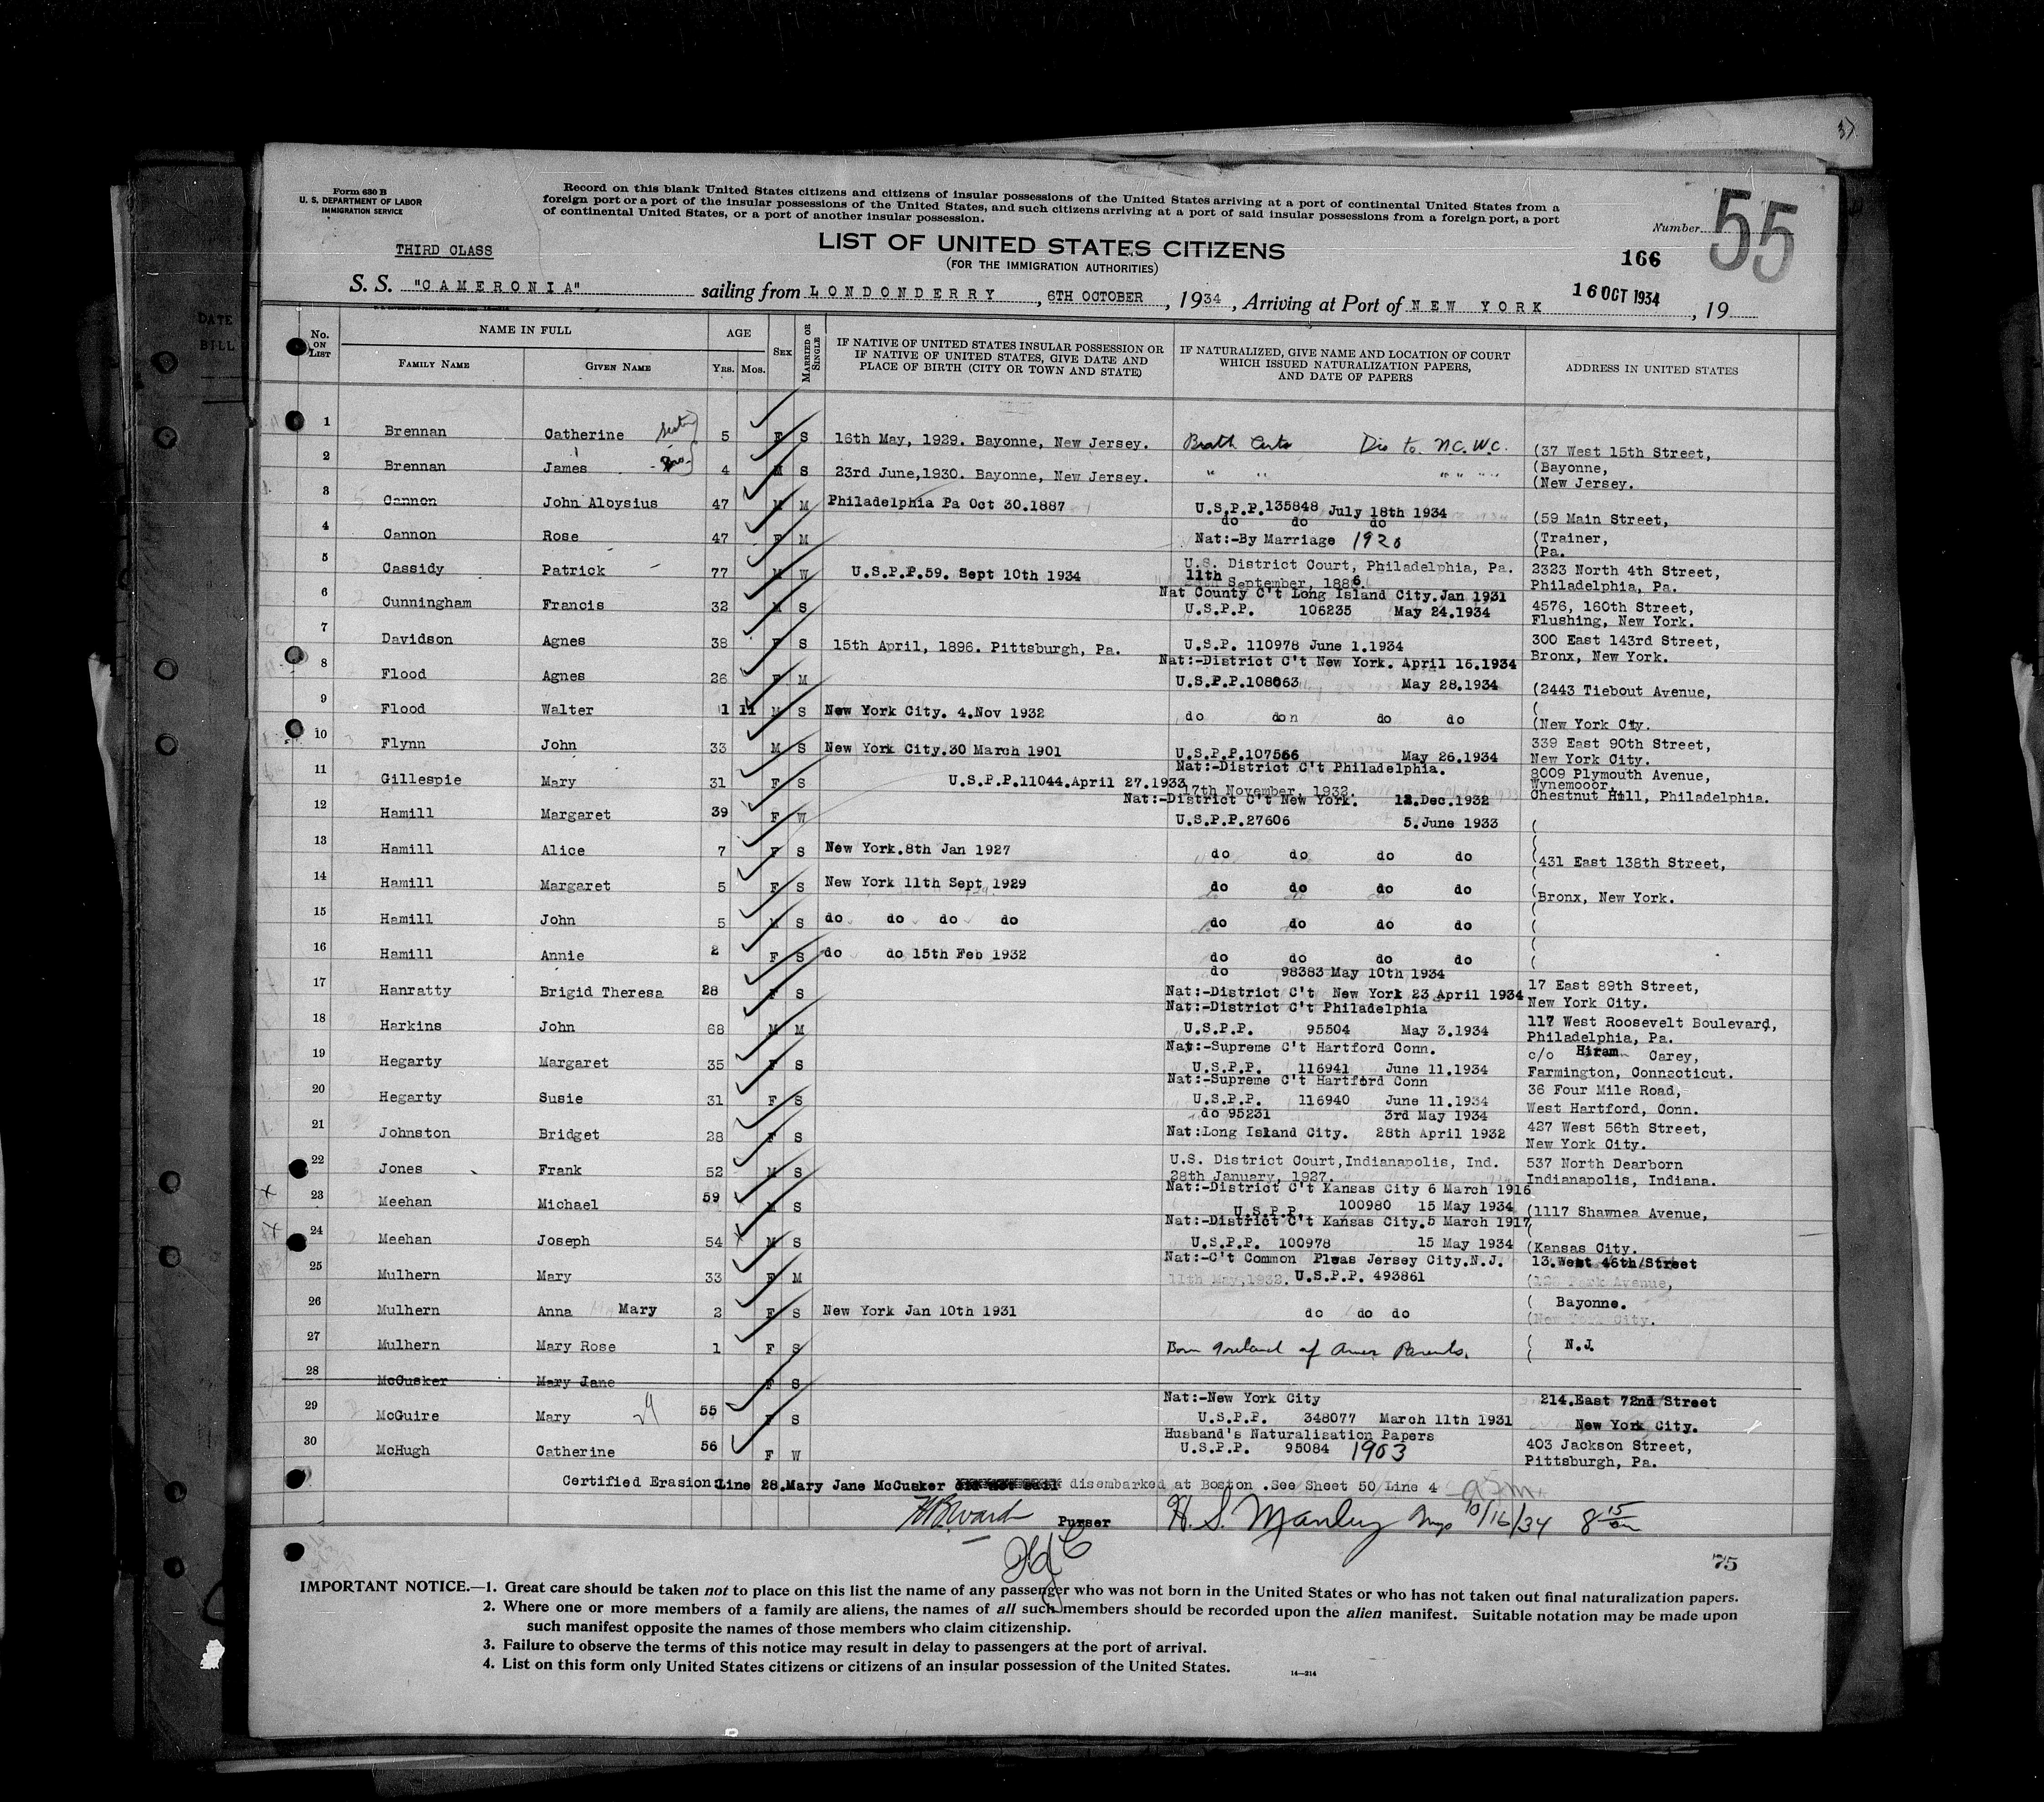 37
Form 630 B
U. S. DEPARTMENT OF LABOR
IMMIGRATION SERVICE
Record on this blank United States citizens and citizens of insular possessions of the United States arriving at a port of continental United States from a
foreign port or a port of the insular possessions of the United States, and such citizens arriving at a port of said insular possessions from a foreign port, a port
of continental United States, or a port of another insular possession.
Number 55
THIRD CLASS
LIST OF UNITED STATES CITIZENS
(FOR THE IMMIGRATION AUTHORITIES)
166
S. S. "CAMERONIA" sailing from LONDONDERRY, 6TH OCTOBER, 1934, Arriving at Port of NEW YORK 16 OCT 1934, 19
DATE
BILL
No. ON LIST
NAME IN FULL
FAMILY NAME
GIVEN NAME
AGE
YRS. MOS.
SEX
MARRIED OR SINGLE
IF NATIVE OF UNITED STATES INSULAR POSSESSION OR
IF NATIVE OF UNITED STATES, GIVE DATE AND
PLACE OF BIRTH (CITY OR TOWN AND STATE)
IF NATURALIZED, GIVE NAME AND LOCATION OF COURT
WHICH ISSUED NATURALIZATION PAPERS,
AND DATE OF PAPERS
ADDRESS IN UNITED STATES
1 Brennan Catherine 5 F S 16th May, 1929. Bayonne, New Jersey. Birth Certs Dis to N.C.W.C. (37 West 15th Street,
2 Brennan James Bro- 4 M S 23rd June,1930. Bayonne, New Jersey. " " " " " " (Bayonne,
(New Jersey.
3 Cannon John Aloysius 47 M M Philadelphia Pa Oct 30.1887 U.S.P.P.135848 July 18th 1934 (59 Main Street,
do do do
4 Cannon Rose 47 F M Nat:-By Marriage 1920 (Trainer,
(Pa.
5 Cassidy Patrick 77 M W U.S.P.P.59. Sept 10th 1934 U.S. District Court, Philadelphia, Pa. 2323 North 4th Street,
11th September, 1886. Philadelphia, Pa.
6 Cunningham Francis 32 M S Nat County C't Long Island City.Jan 1931
U.S.P.P. 106235 May 24.1934 4576, 160th Street,
Flushing, New York.
7 Davidson Agnes 38 F S 15th April, 1896. Pittsburgh, Pa. U.S.P. 110978 June 1.1934 300 East 143rd Street,
Bronx, New York.
8 Flood Agnes 26 F M Nat:-District C't New York. April 16.1934
U.S.P.P.108063 May 28.1934 (2443 Tiebout Avenue,
9 Flood Walter 1 11 M S New York City. 4.Nov 1932 do don do do (
(New York City.
10 Flynn John 33 M S New York City.30 March 1901 U.S.P.P.107566 May 26.1934 339 East 90th Street,
New York City.
11 Gillespie Mary 31 F S U.S.P.P.11044.April 27.1933 Nat:-District C't Philadelphia. 8009 Plymouth Avenue,
17th November, 1932. Wynemooor,
Chestnut Hill, Philadelphia.
12 Hamill Margaret 39 F W Nat:-District C't New York. 12.Dec.1932
U.S.P.P.27606 5.June 1933 (
13 Hamill Alice 7 F S New York.8th Jan 1927 do do do do (431 East 138th Street,
14 Hamill Margaret 5 F S New York 11th Sept 1929 do do do do (Bronx, New York.
15 Hamill John 5 M S do do do do do do do do (
16 Hamill Annie 2 F S do do 15th Feb 1932 do do do do (
17 Hanratty Brigid Theresa 28 F S do 98383 May 10th 1934 17 East 89th Street,
Nat:-District C't New York 23 April 1934 New York City.
18 Harkins John 68 M M Nat:-District C't Philadelphia
U.S.P.P. 95504 May 3.1934 117 West Roosevelt Boulevard,
Philadelphia, Pa.
19 Hegarty Margaret 35 F S Nat:-Supreme C't Hartford Conn. c/o Hiram Carey,
U.S.P.P. 116941 June 11.1934 Farmington, Connecticut.
20 Hegarty Susie 31 F S Nat:-Supreme C't Hartford Conn 36 Four Mile Road,
U.S.P.P. 116940 June 11.1934 West Hartford, Conn.
21 Johnston Bridget 28 F S do 95231 3rd May 1934 427 West 56th Street,
Nat:Long Island City. 28th April 1932 New York City.
22 Jones Frank 52 M S U.S. District Court,Indianapolis, Ind. 537 North Dearborn
28th January, 1927. Indianapolis, Indiana.
23 Meehan Michael 59 M S Nat:-District C't Kansas City 6 March 1916
U.S.P.P. 100980 15 May 1934 (1117 Shawnea Avenue,
24 Meehan Joseph 54 M S Nat:-District C't Kansas City.5 March 1917 (
U.S.P.P. 100978 15 May 1934 (Kansas City.
25 Mulhern Mary 33 F M Nat:-C't Common Pleas Jersey City.N.J. 13.West 46th Street
11th May,1932. U.S.P.P. 493861
26 Mulhern Anna Mary 2 F S New York Jan 10th 1931 do do do ( Bayonne.
(New York City.
27 Mulhern Mary Rose 1 F S Born Ireland of Amer Parents. ( N.J.
28 McCusker Mary Jane F S
29 McGuire Mary 55 F S Nat:-New York City 214.East 72nd Street
U.S.P.P. 348077 March 11th 1931 New York City.
30 McHugh Catherine 56 F W Husband's Naturalisation Papers 403 Jackson Street,
U.S.P.P. 95084 1903 Pittsburgh, Pa.
Certified Erasion:Line 28.Mary Jane McCusker did not sail disembarked at Boston .See Sheet 50 Line 4
Purser H. S. Manley 10/16/34 8 15
75
IMPORTANT NOTICE.—1. Great care should be taken not to place on this list the name of any passenger who was not born in the United States or who has not taken out final naturalization papers.
2. Where one or more members of a family are aliens, the names of all such members should be recorded upon the alien manifest. Suitable notation may be made upon
such manifest opposite the names of those members who claim citizenship.
3. Failure to observe the terms of this notice may result in delay to passengers at the port of arrival.
4. List on this form only United States citizens or citizens of an insular possession of the United States.
14—214